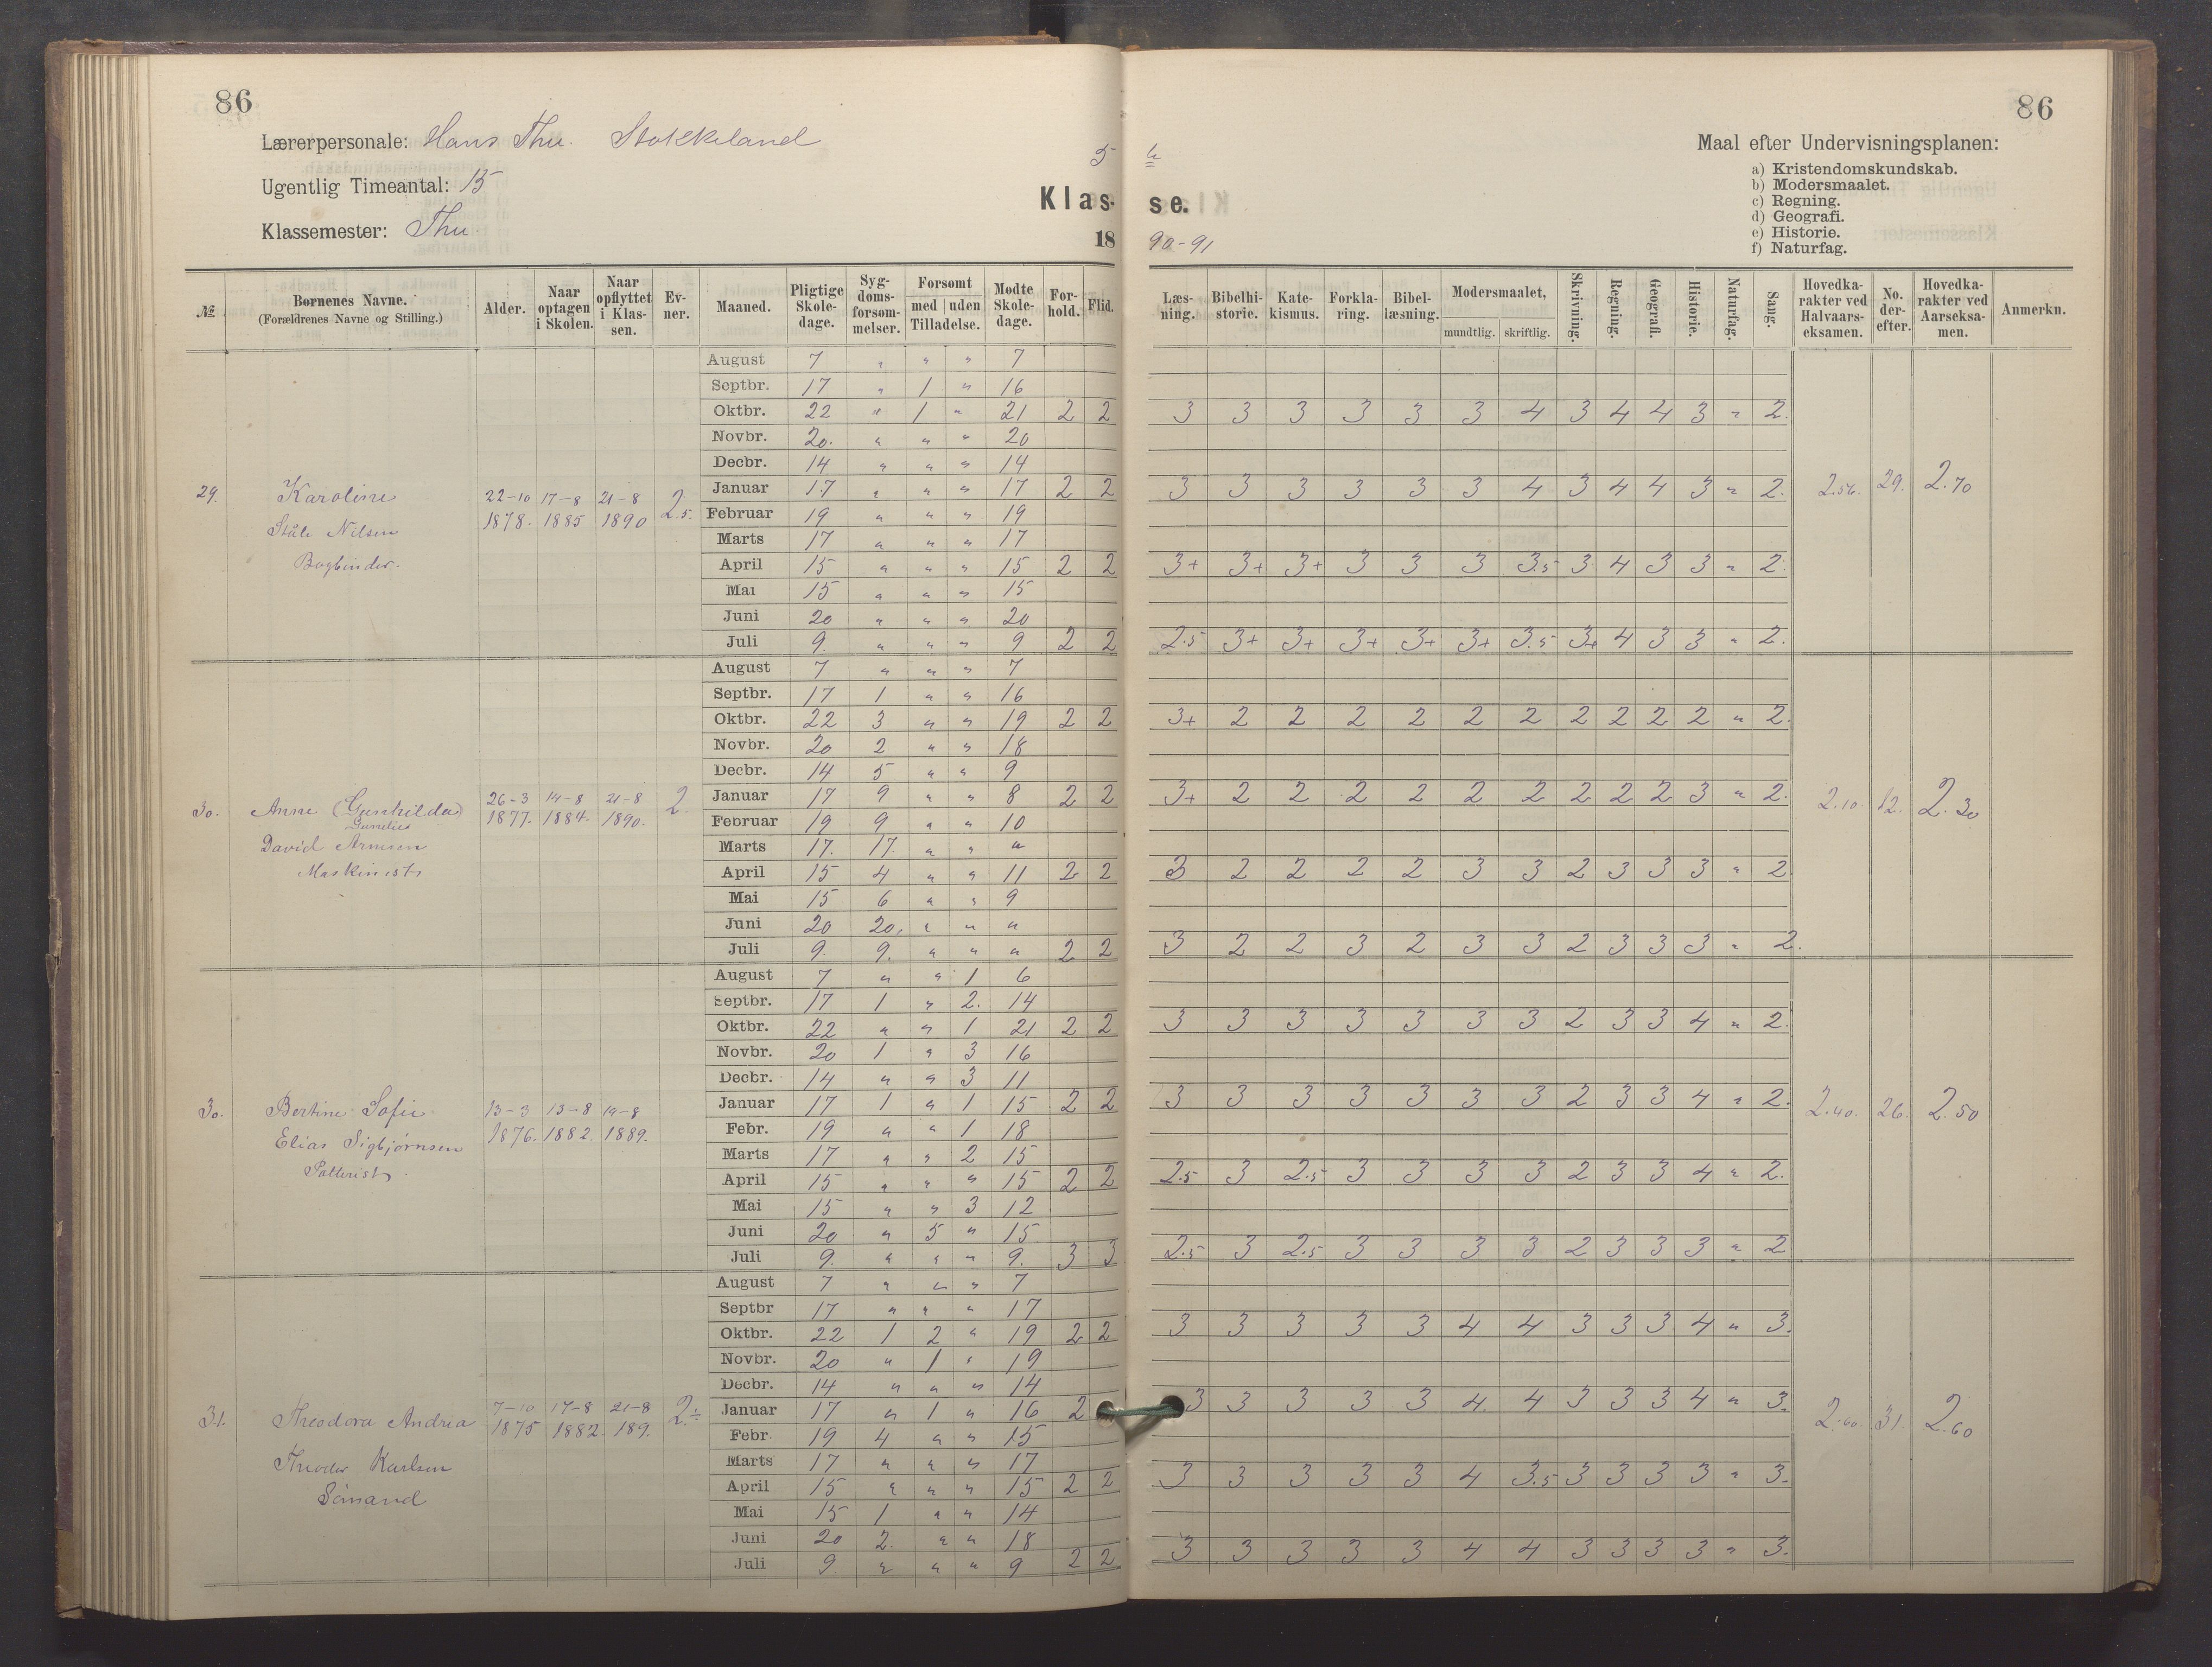 86
86
Lærerpersonale: Hans Thu. Stokkeland
Ugentlig Timeantal: 15
Klassemester: Thu
5 b
Klas- se.
18 90-91
Maal efter Undervisningsplanen:
a) Kristendomskundskab.
b) Modersmaalet.
c) Regning.
d) Geografi.
e) Historie.
f) Naturfag.
№ Børnenes Navne. (Forældrenes Navne og Stilling.) Alder. Naar optagen i Skolen. Naar opflyttet i Klas-sen. Ev-ner. Maaned. Pligtige Skole-dage. Syg-doms-forsøm-melser. Forsømt med uden Tilladelse. Mødte Skole-dage. For-hold. Flid. Læs-ning. Bibelhi-storie. Kate-kismus. Forkla-ring. Bibel-læsning. Modersmaalet, mundtlig. skriftlig. Skrivning. Regning. Geografi. Historie. Naturfag. Sang. Hovedka-rakter ved Halvaars-eksamen. No. der-efter. Hovedka-rakter ved Aarseksa-men. Anmerkn.
29. Karoline
Ståle Nilsen
Bogbinder.
22-10 1878. 17-8 1885 21-8 1890 2.5.
August 7 " " " 7
Septbr. 17 " 1 " 16
Oktbr. 22 " 1 " 21 2 2 3 3 3 3 3 3 4 3 4 4 3 " 2.
Novbr. 20. " " " 20
Decbr. 14 " " " 14
Januar 17 " " " 17 2 2 3 3 3 3 3 3 4 3 4 4 3 " 2. 2.56. 29. 2.70
Februar 19 " " " 19
Marts 17 " " " 17
April 15 " " " 15 2 2 3+ 3+ 3+ 3 3 3 3.5 3 4 3 3 " 2.
Mai 15 " " " 15
Juni 20 " " " 20
Juli 9. " " " 9 2 2 2.5 3+ 3+ 3+ 3+ 3+ 3.5 3+ 4 3 3 " 2.
30. Anne (Gunhilda)
David
Maskinist
26-3 1877. 14-8 1884. 21-8 1890. 2.
August 7 " " " 7
Septbr. 17 1 " " 16
Oktbr. 22 3 " " 19 2 2 3+ 2 2 2 2 2 2 2 2 2 2 " 2.
Novbr. 20 2 " " 18
Decbr. 14 5 " " 9
Januar 17 9 " " 8 2 2 3+ 2 2 2 2 2 2 2 2 2 3 " 2. 2.10 12. 2.30
Februar 19 9 " " 10
Marts 17. 17. " " "
April 15 4 " " 11 2 2 3 2 2 2 2 3 3 2 3 3 3 " 2
Mai 15 6 " " 9
Juni 20 20. " " "
Juli 9. 9. " " " 2 2 3 2 2 3 2 3 3 2 3 3 3 " 2.
30. Bertine Sofie
Elias Sigbjørnsen
13-3 1876. 13-8 1882. 19-8 1889.
August 7 " " 1 6
Septbr. 17 1 " 2. 14
Oktbr. 22 " " 1 21 2 2 3 3 3 3 3 3 3 2 3 3 4 " 2.
Novbr. 20 1 " 3 16
Decbr. 14 " " 3 11
Januar 17 1 " 1 15 2 2 3 3 3 3 3 3 3 2 3 3 4 " 2. 2.40. 26. 2.50
Febr. 19 " " 1 18
Marts 17 " " 2 15
April 15 " " " 15 2 2 2.5 3 2.5 3 3 3 3 2 3 3 4 " 2.
Mai 15 " " 3 12
Juni 20 " 5 " 15
Juli 9. " " " 9. 3 3 2.5 3 2.5 3 3 3 3 2 3 3 3 " 2
31. Theodora Andria
Theodor Karlsen
Sømand
7-10 1875 17-8 1882. 21-8 189. 2.÷
August 7 " " " 7
Septbr 17 " " " 17
Oktbr. 22 1 2 " 19 2 2 3 3 3 3 3 4 4 3 3 3 4 " 3.
Novbr. 20 " 1 " 19
Decbr. 14 " " " 14
Januar 17 " 1 " 16 2 3 3 3 3 3 4. 4 3 3 3 4 " 3. 2.60 31. 2.60
Febr. 19 4 " " 15
Marts 17 " " " 17
April 15 " " " 15 2 2 3 3 3 3 3 4 3.5 3 3 3 3 " 3.
Mai 15 1 " " 14
Juni 20 2. " " 18
Juli 9. " " " 9 2 2 3 3 3 3 3 4 4 3 3 3 3 " 3.